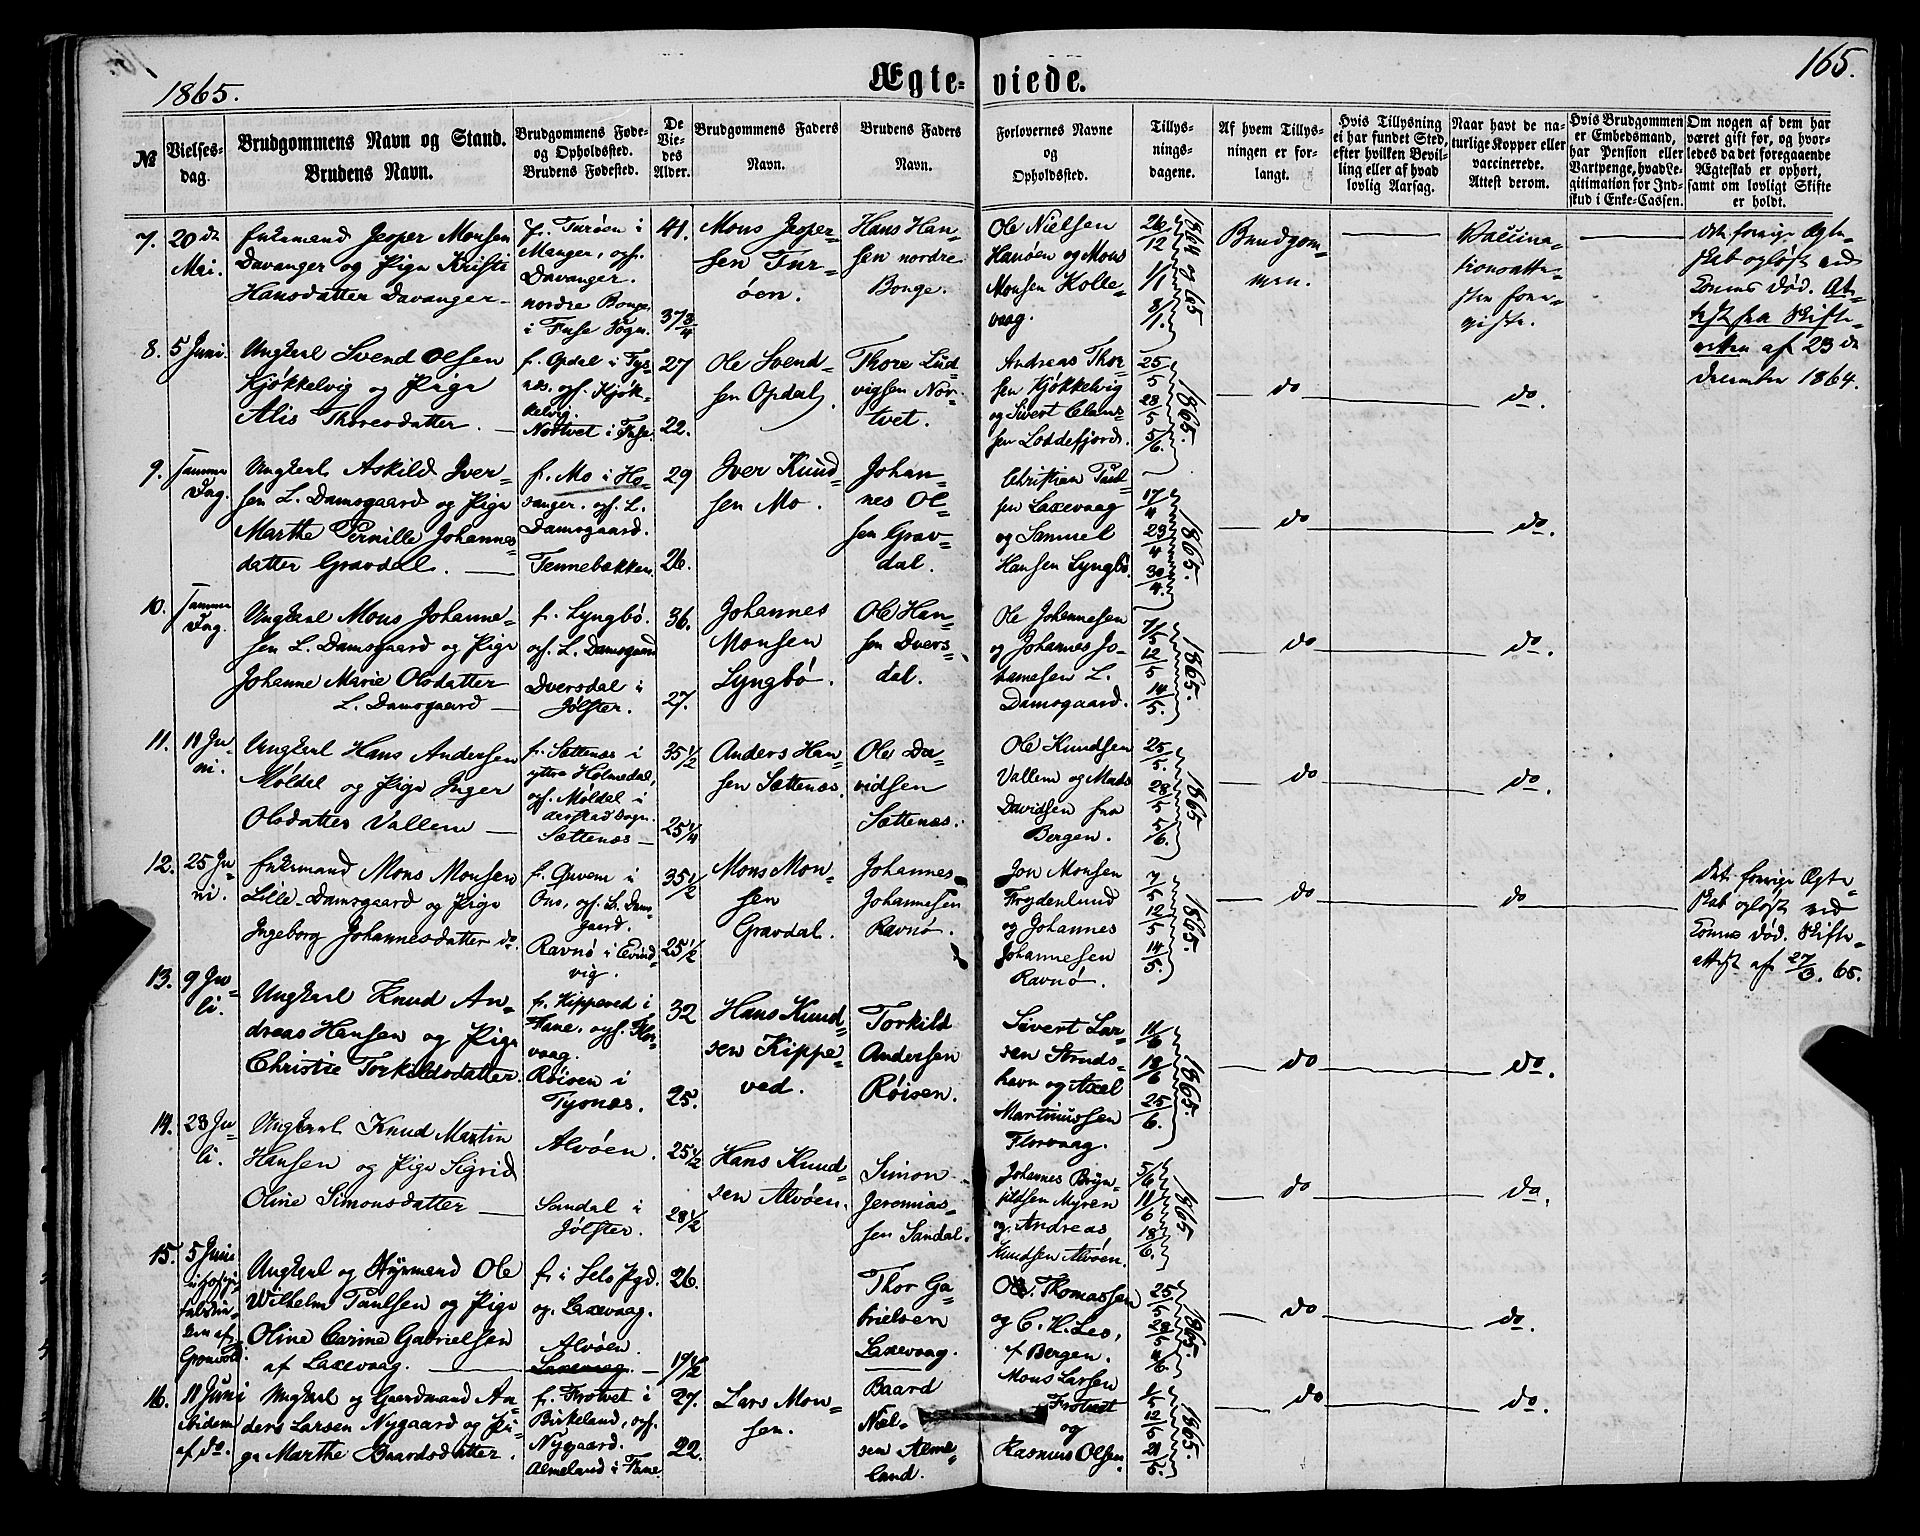 165.
1865.
Ægte- viede.
№
Vielses-
dag.
Brudgommens Navn og Stand.
Brudens Navn.
Brudgommens Føde-
og Opholdssted.
Brudens Fødested.
De
Vie-
des
Alder.
Brudgommens Faders
Navn.
Brudens Faders
Navn.
Forlovernes Navne
og
Opholdssted.
Tillys-
nings-
dagene.
Af hvem Tillys-
ningen er for-
langt.
Hvis Tillysning
ei har fundet Sted,
efter hvilken Bevil-
ling eller af hvad
lovlig Aarsag.
Naar havt de na-
turlige Kopper eller
vaccinerede.
Attest derom.
Hvis Brudgommen
er Embedsmand,
har Pension eller
Vartpenge, hvad Le-
gitimation for Ind-
skud i Enke-Cassen.
Om nogen af dem har
været gift før, og hvor-
ledes da det foregaaende
Ægteskab er ophørt,
samt om lovligt Skifte
er holdt.
7.
20de
Mai.
Enkemand Jesper Monsen
Davanger og Pige Kristi
Hansdatter Davanger
f. Turøen i
Manger, oph.
Davanger.
nordre Bonge
i Fuse Sogn.
41.
37 3/4
Mons Jesper-
sen Tur-
øen.
Hans Han-
sen nordre
Bonge.
Ole Nielsen
Hanøen og Mons
Monsen Kolle-
vaag.
26/12
1/1
8/1.
1864 og 65
Brudgom-
men.
Vaccina-
tionsatte-
ster fore-
viste.
Det forrige Ægte-
skab opløst ved
Konens Død. At-
test fra Skifte-
retten af 23de
December 1864.
8.
5 Juni.
Ungkarl Svend Olsen
Kjøkkelvig og Pige
Alis Thoresdatter.
f. Opdal i Tys-
nes, oph. Kjøk-
kelvig.
Nortvet i Fuse.
27
22.
Ole Svend-
sen Opdal.
Thore Lud-
vigsen Nor-
tvet.
Andreas Thor-
sen Kjøkkelvig
og Sivert Clem-
sen Loddefjord.
25/5
28/5
5/6.
1865.
do
do.
9.
Samme
Dag.
Ungkarl Askild Iver-
sen L. Damsgaard og Pige
Marthe Pernille Johannes-
datter Gravdal.
f. Mo i Ho-
sanger, oph. L.
Damsgaard.
Tennebækken.
29
26.
Iver Knud-
sen Mo.
Johan-
nes Ol-
sen Grav-
dal.
Christian Paul-
sen Laxevaag
og Samuel
Hansen Lyngbø.
17/4
23/4
30/4.
1865.
do
do.
10.
Samme
Dag.
Ungkarl Mons Johanne-
sen L. Damsgaard og Pige
Johanne Marie Olsdatter
L. Damsgaard
f. Lyngbø.
oph. L. Damsgaard
Dversdal i
Jølster.
36.
27.
Johannes
Monsen
Lyngbø.
Ole Han-
sen Dvers-
dal.
Ole Johannesen
og Johannes Jo-
hannesen L.
Damsgaard.
7/5
12/5
14/5.
1865.
do
do.
11.
11 Ju-
ni.
Ungkarl Hans Andersen
Møldal og Pige Inger
Olsdatter Vallem
f. Sættenæs i
yttre Holmedal,
oph. Møldal i
Sogn.
Sættenæs
35 1/2
25 1/4
Anders Han-
sen Sættenæs.
Ole Da-
vidsen
Sættenæs.
Ole Knudsen
Vallem og Mads
Davidsen fra
Bergen.
25/5.
28/5
5/6.
1865
do
do.
12.
25 Ju-
ni.
Enkemand Mons Monsen
Lille-Damsgaard og Pige
Ingeborg Johannesdatter do.
f. Guvem i
Ous, oph. L. Dams-
gaard.
Ravnø i Evind-
vig.
35 1/2
25 1/2
Mons Mon-
sen
Gravdal.
Johannes
Johannesen
Ravnø.
Jon Monsen
Frydenlund
og Johannes
Johannesen
Ravnø.
7/5
12/5
14/5.
1865.
do
do
Det forrige Ægte-
skab opløst ved
Konens Død. Skifte-
attest af 27/3. 65.
13.
9 Ju-
li.
Ungkarl Knud An-
dreas Hansen og Pige
Christie Torkildsdatter.
f. Kipperved i
Fane, oph. Flor-
vaag.
Røisen i
Tysnæs.
32
25.
Hans Knud-
sen Kippe-
ved.
Torkild
Andersen
Røisen.
Sivert Lar-
sen Struds-
havn og Axel
Martinussen
Florvaag.
11/6
18/6
25/6.
1865.
do
do.
14.
23 Ju-
li.
Ungkarl Knud Martin
Hansen og Pige Sigrid
Oline Simonsdatter
Alvøen.
Sandal i
Jølster.
25 1/2
28 1/2
Hans Knud-
sen Alvøen.
Simon
Jeremias-
sen Sandal.
Johannes Bryn-
ildsen Myren
og Andreas
Knudsen Alvøen.
5/6
11/6
18/6.
1865
do
do.
15.
5 Juni
Ungkarl og Styrmand Ole
Wilhelm Paulsen og Pige
Oline Carine Gabrielsen
af Laxevaag.
f. i Sels Pgd.
og Laxevaag.
Alvøen
Laxevaag.
26.
19 1/2
Thor Ga-
brielsen
Laxevaag.
Ole Thomassen
og C. H. Les,
af Bergen.
25/5
28/5
4/6.
1865.
do
do.
16.
11 Juni
ibidem
af do.
Ungkarl og Gaardmand An-
ders Larsen Nygaard og Pi-
ge Marthe Baardsdatter.
f. Frotvet i
Birkeland, oph.
Nygaard.
Almeland i Fane
27.
22.
Lars Mon-
sen.
Baard
Niel-
sen Alme-
land.
Mons Larsen
Frotvet
og
Rasmus Olsen.
1/5
12/5
21/5.
1865.
do
do.